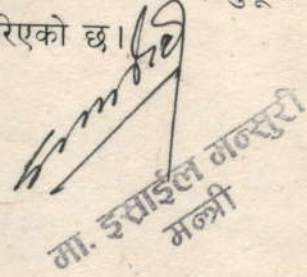 रिएको छ।
मा. इस्राईल मन्सुरी
मन्त्री